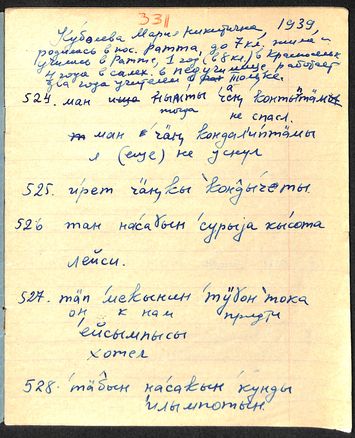 331
Кубалева Мария Никитична, 1939,
родилась в пос. Ратта, до 7 кл. жила и
училась в Ратте, 1 год (в 8 кл) в Красноселькупе
4 года в салех. в педучилище, работает
два года учителем в
524. ман ны̄мты чаӈ контыптӓмыт
тогда не спал.
ман чаӈ кондалыптӓмы
я (еще) не уснул
525. ирет чаӈкы кондычеты.
526 тан насабын сурыја кысота
лейси.
527. тӓп мекынин тӱбон тока
он к нам придти
ейсымпысы
хотел
528. тӓбын насакын кунды
илымпотын.